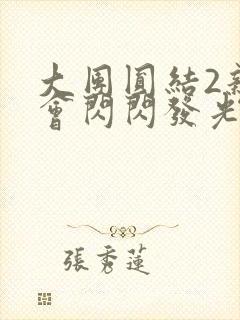 大團圓結2新
會閃閃發光
張秀蓮